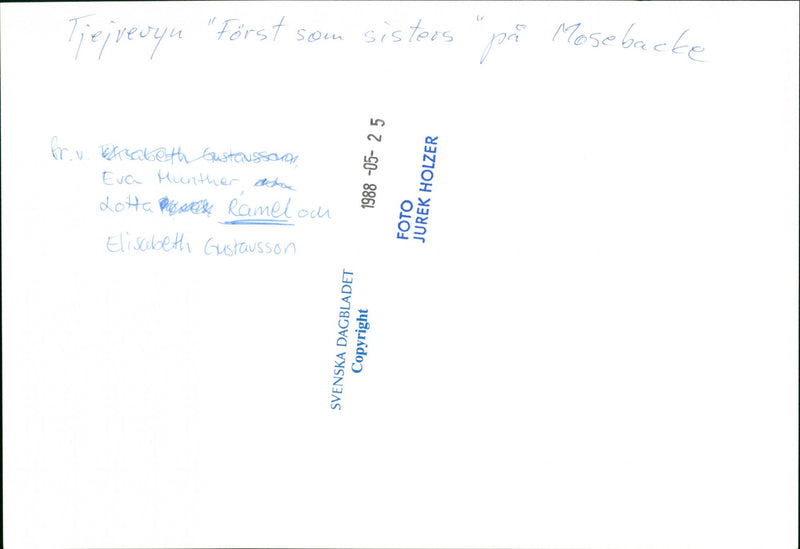 Tjejrevyn "Först som sisters" på Mosebacke
fr.v. Elisabeth Gustavsson,
Eva Munther,
Lotta Ramel och
Elisabeth Gustavsson
1988 -05- 25
FOTO
JUREK HOLZER
SVENSKA DAGBLADET
Copyright